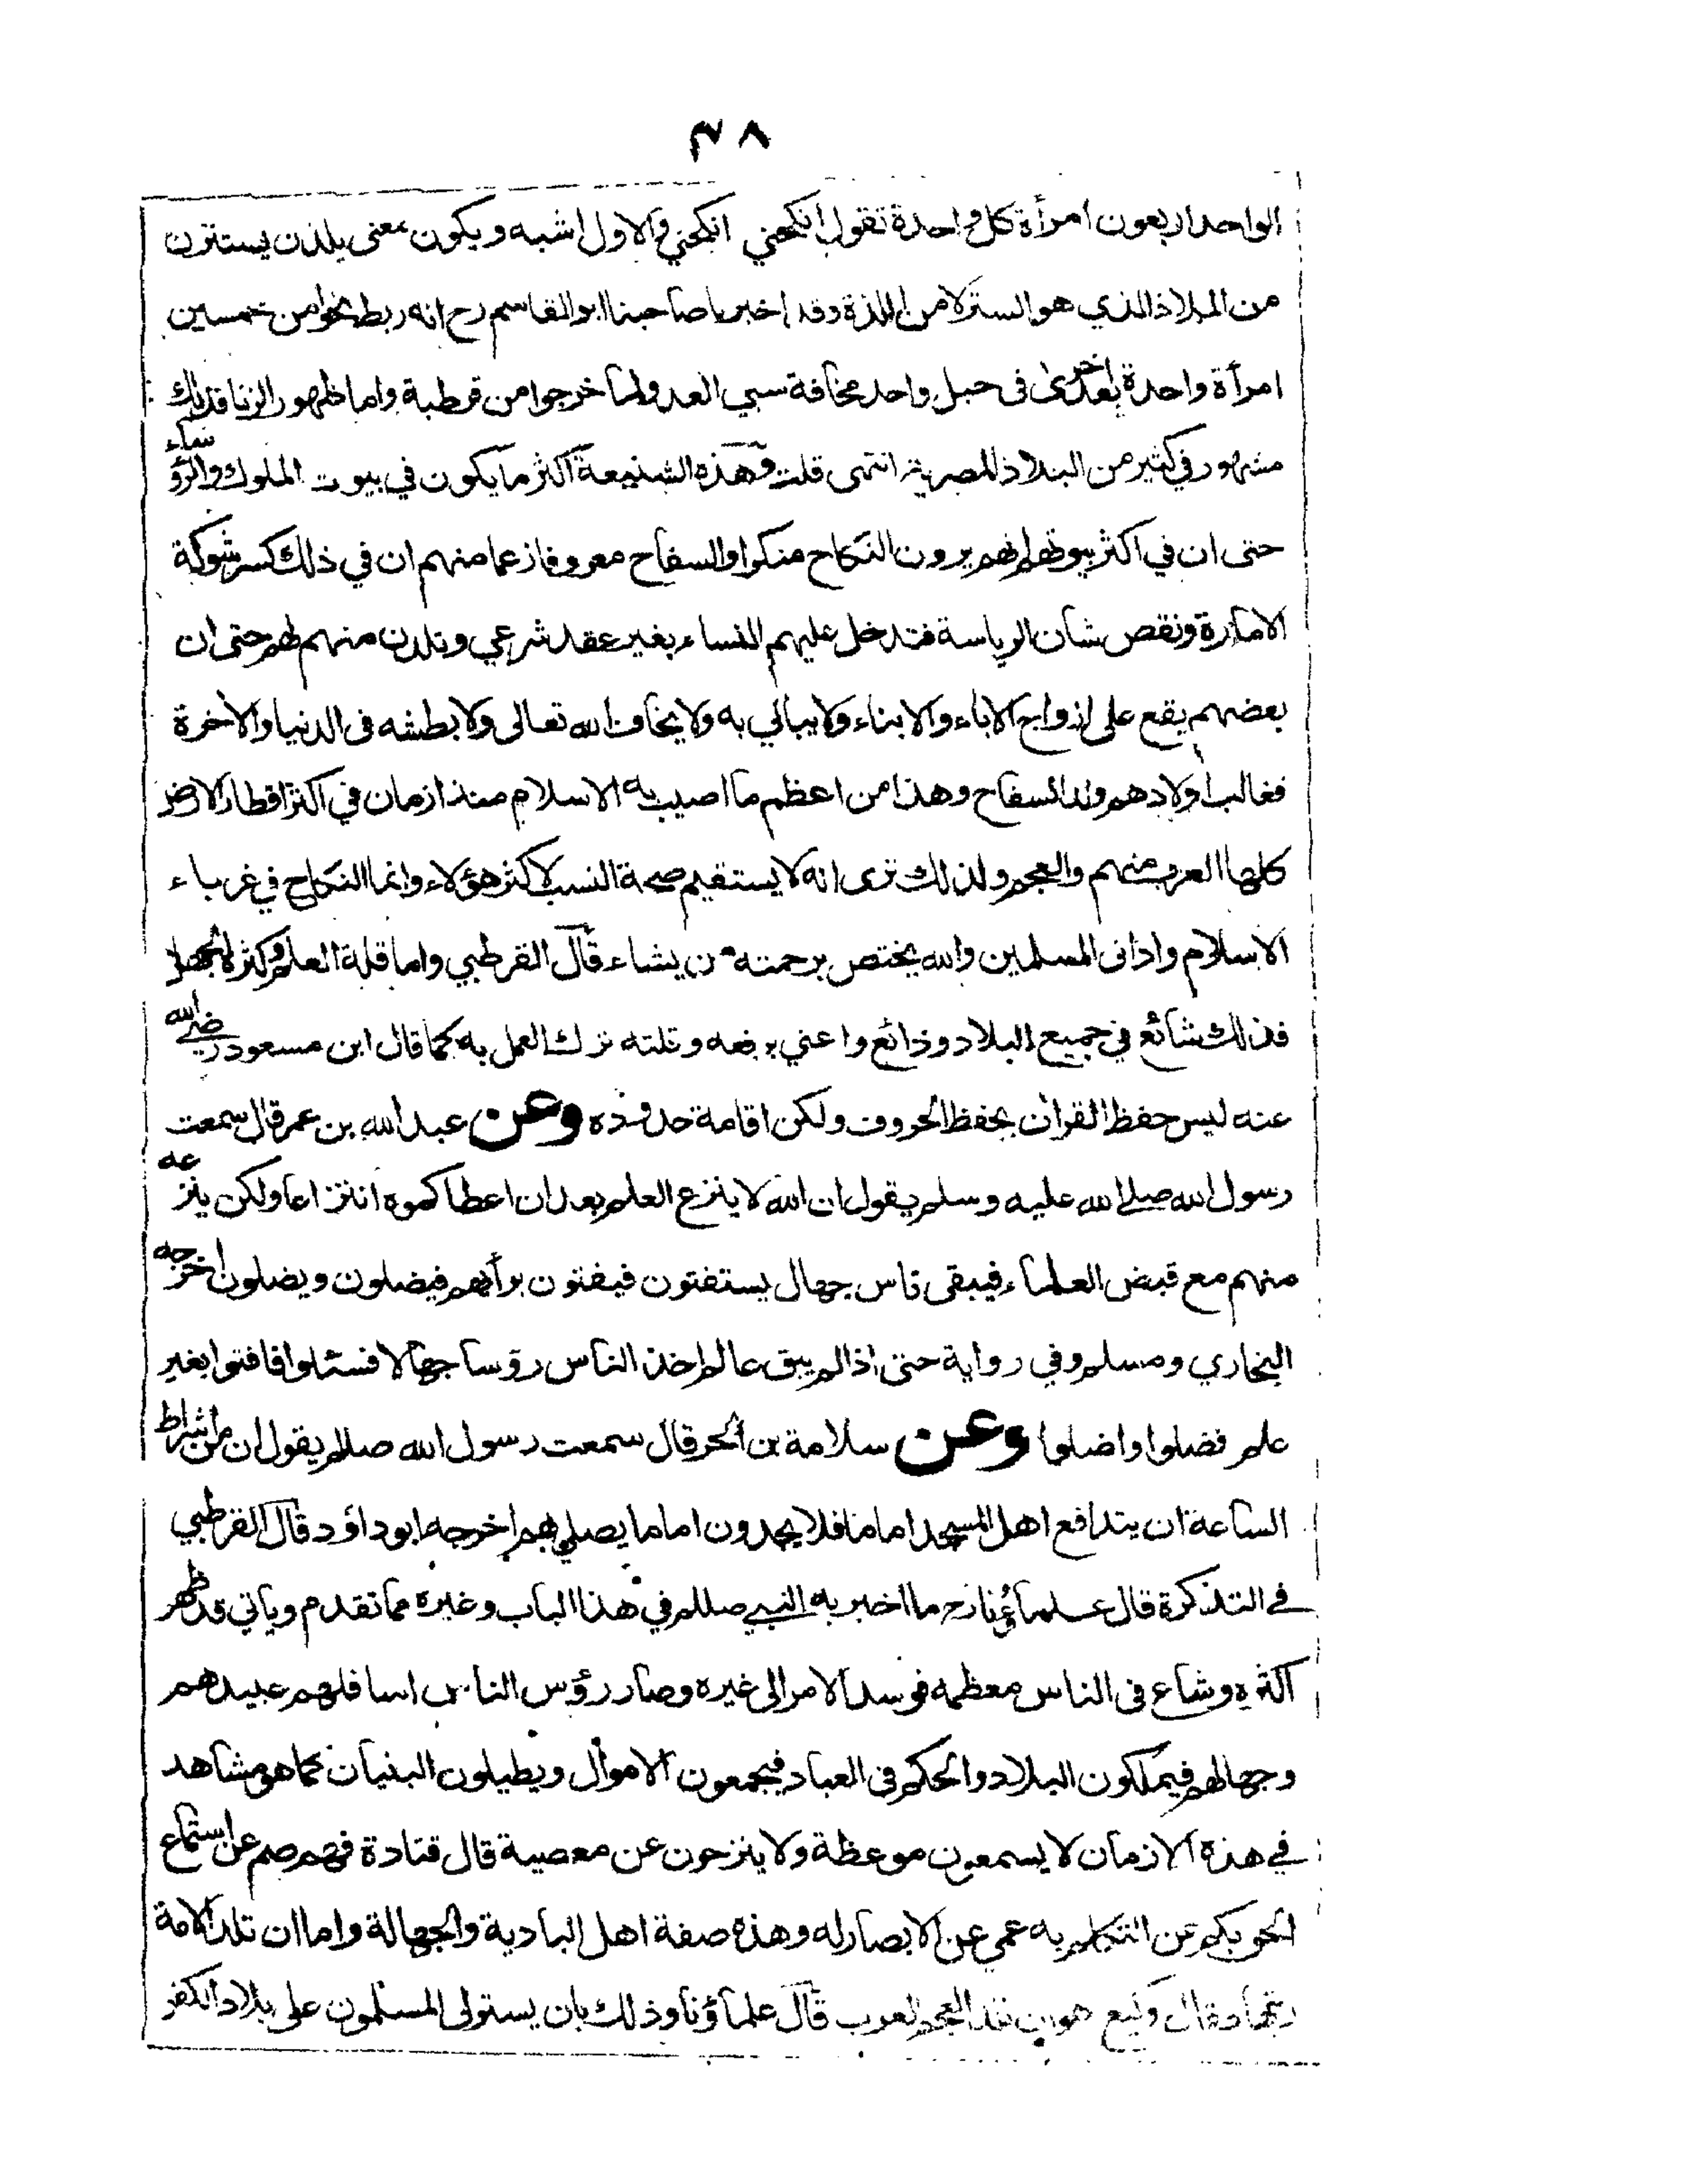 ٣٨
الواحد اربعون امرأة كل واحدة تقول انكحني انكحني والاول اشبه ويكون بمعنى يلذن يستترن
من الملاذ الذي هو الستر لا من اللذة وقد اخبرنا صاحبنا ابو القاسم رح انه ربط نحوا من خمسين
امرأة واحدة بعد اخرى في حبل واحد مخافة سبي العدو لما خرجوا من قرطبة واما ظهور الزنا فذلك
مشهور في كثير من البلاد المصرية انتهى قلت وهذه الشنيعة اكثر ما يكون في بيوت الملوك والرؤساء
حتى ان في اكثر بيوتهم انهم يرون النكاح منكرا والسفاح معروفا زعما منهم ان في ذلك كسر شوكة
الامارة ونقص شان الرياسة فتدخل عليهم النساء بغير عقد شرعي وتلدن منهم لهم حتى ان
بعضهم يقع على ازواج الاباء والابناء ولا يبالي به ولا يخاف الله تعالى ولا بطشه في الدنيا والاخرة
فغالب اولادهم ولد السفاح وهذا من اعظم ما اصيب به الاسلام منذ ازمان في اكثر اقطار الارض
كلها العرب منهم والعجم ولذلك ترى انه لا يستقيم صحة النسب لاكثر هؤلاء وانما النكاح في غرباء
الاسلام واداني المسلمين والله يختص برحمته من يشاء قال القرطبي واما قلة العلم وكثرة الجهل
فذلك شائع في جميع البلاد وذائع واعني برفعه وقلته ترك العمل به كما قال ابن مسعود رضي الله
عنه ليس حفظ القران بحفظ الحروف ولكن اقامة حدوده وعن عبد الله بن عمر قال سمعت
رسول الله صلى الله عليه وسلم يقول ان الله لا ينزع العلم بعد ان اعطاكموه انتزاعا ولكن ينزعه
منهم مع قبض العلماء فيبقى ناس جهال يستفتون فيفتون برأيهم فيضلون ويضلون اخرجه
البخاري ومسلم وفي رواية حتى اذا لم يبق عالم اخذ الناس رؤسا جهالا فسئلوا فافتوا بغير
علم فضلوا واضلوا وعن سلامة بن الحر قال سمعت رسول الله صللم يقول ان من اشراط
الساعة ان يتدافع اهل المسجد اماما فلا يجدون اماما يصلي بهم اخرجه ابو داؤد قال القرطبي
في التذكرة قال علماؤنا رح ما اخبر به النبي صللم في هذا الباب وغيره مما تقدم وياتي قد ظهر
اكثره وشاع في الناس معظمه فوسد الامر الى غيره وصار رؤس الناس اسافلهم عبيدهم
وجهالهم فيملكون البلاد والحكم في العباد فيجمعون الاموال ويطيلون البنيان كما هو مشاهد
في هذه الازمان لا يسمعون موعظة ولا ينزحون عن معصية قال قتادة فهم صم عن استماع
الحق بكم عن التكلم به عمي عن الابصار له وهذه صفة اهل البادية والجهالة واما ان تلد الامة
ربتها فقال وكيع هو ان تلد العجم العرب قال علماؤنا وذلك بان يستولى المسلمون على بلاد الكفر